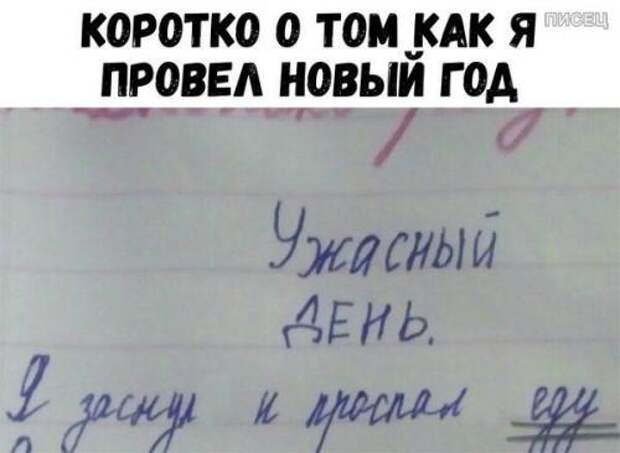 КОРОТКО О ТОМ КАК Я
ПРОВЕЛ НОВЫЙ ГОД
ПИСЕЦ
Ужасный
ДЕНЬ.
Я заснул и проспал еду